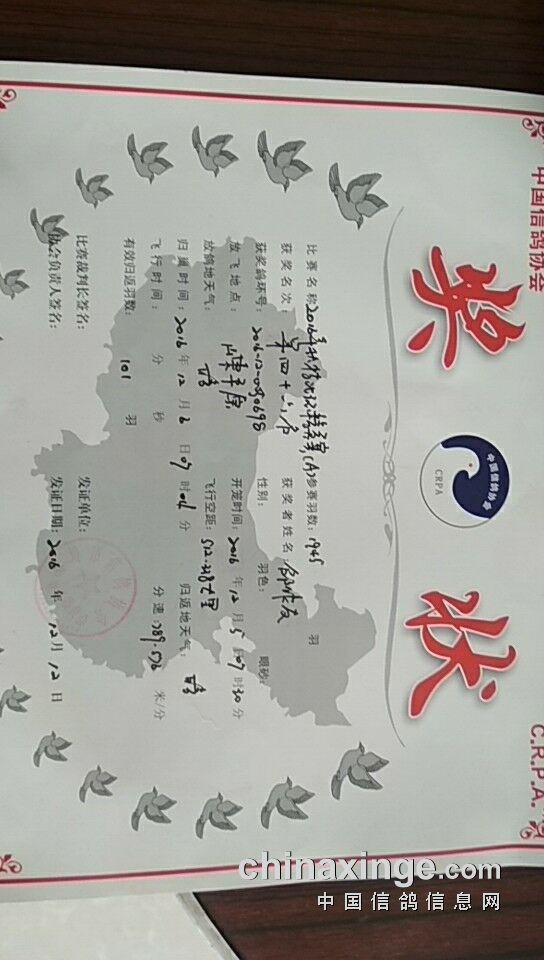 中国信鸽协会
C.R.P.A.
中国信鸽协会
CRPA
奖状
比赛名称: 2016年 (A) 参赛羽数: 1945 羽
获奖名次: 第四十六名 获奖者姓名:
获奖鸽环号: 2016-12-0890698 性别: 羽色: 眼砂:
放飞地点: 山东平原 开笼时间: 2016 年 12 月 5 日 07 时 30 分
放鸽地天气: 晴 飞行空距: 512.238公里 归返地天气: 晴
归巢时间: 2016 年 12 月 6 日 07 时 04 分
飞行时间: 分 秒 分速: 789.576 米/分
有效归返羽数: 101 羽
比赛裁判长签名: 发证单位:
协会负责人签名: 发证日期: 2016 年 12 月 12 日
chinaxinge.com
中国信鸽信息网